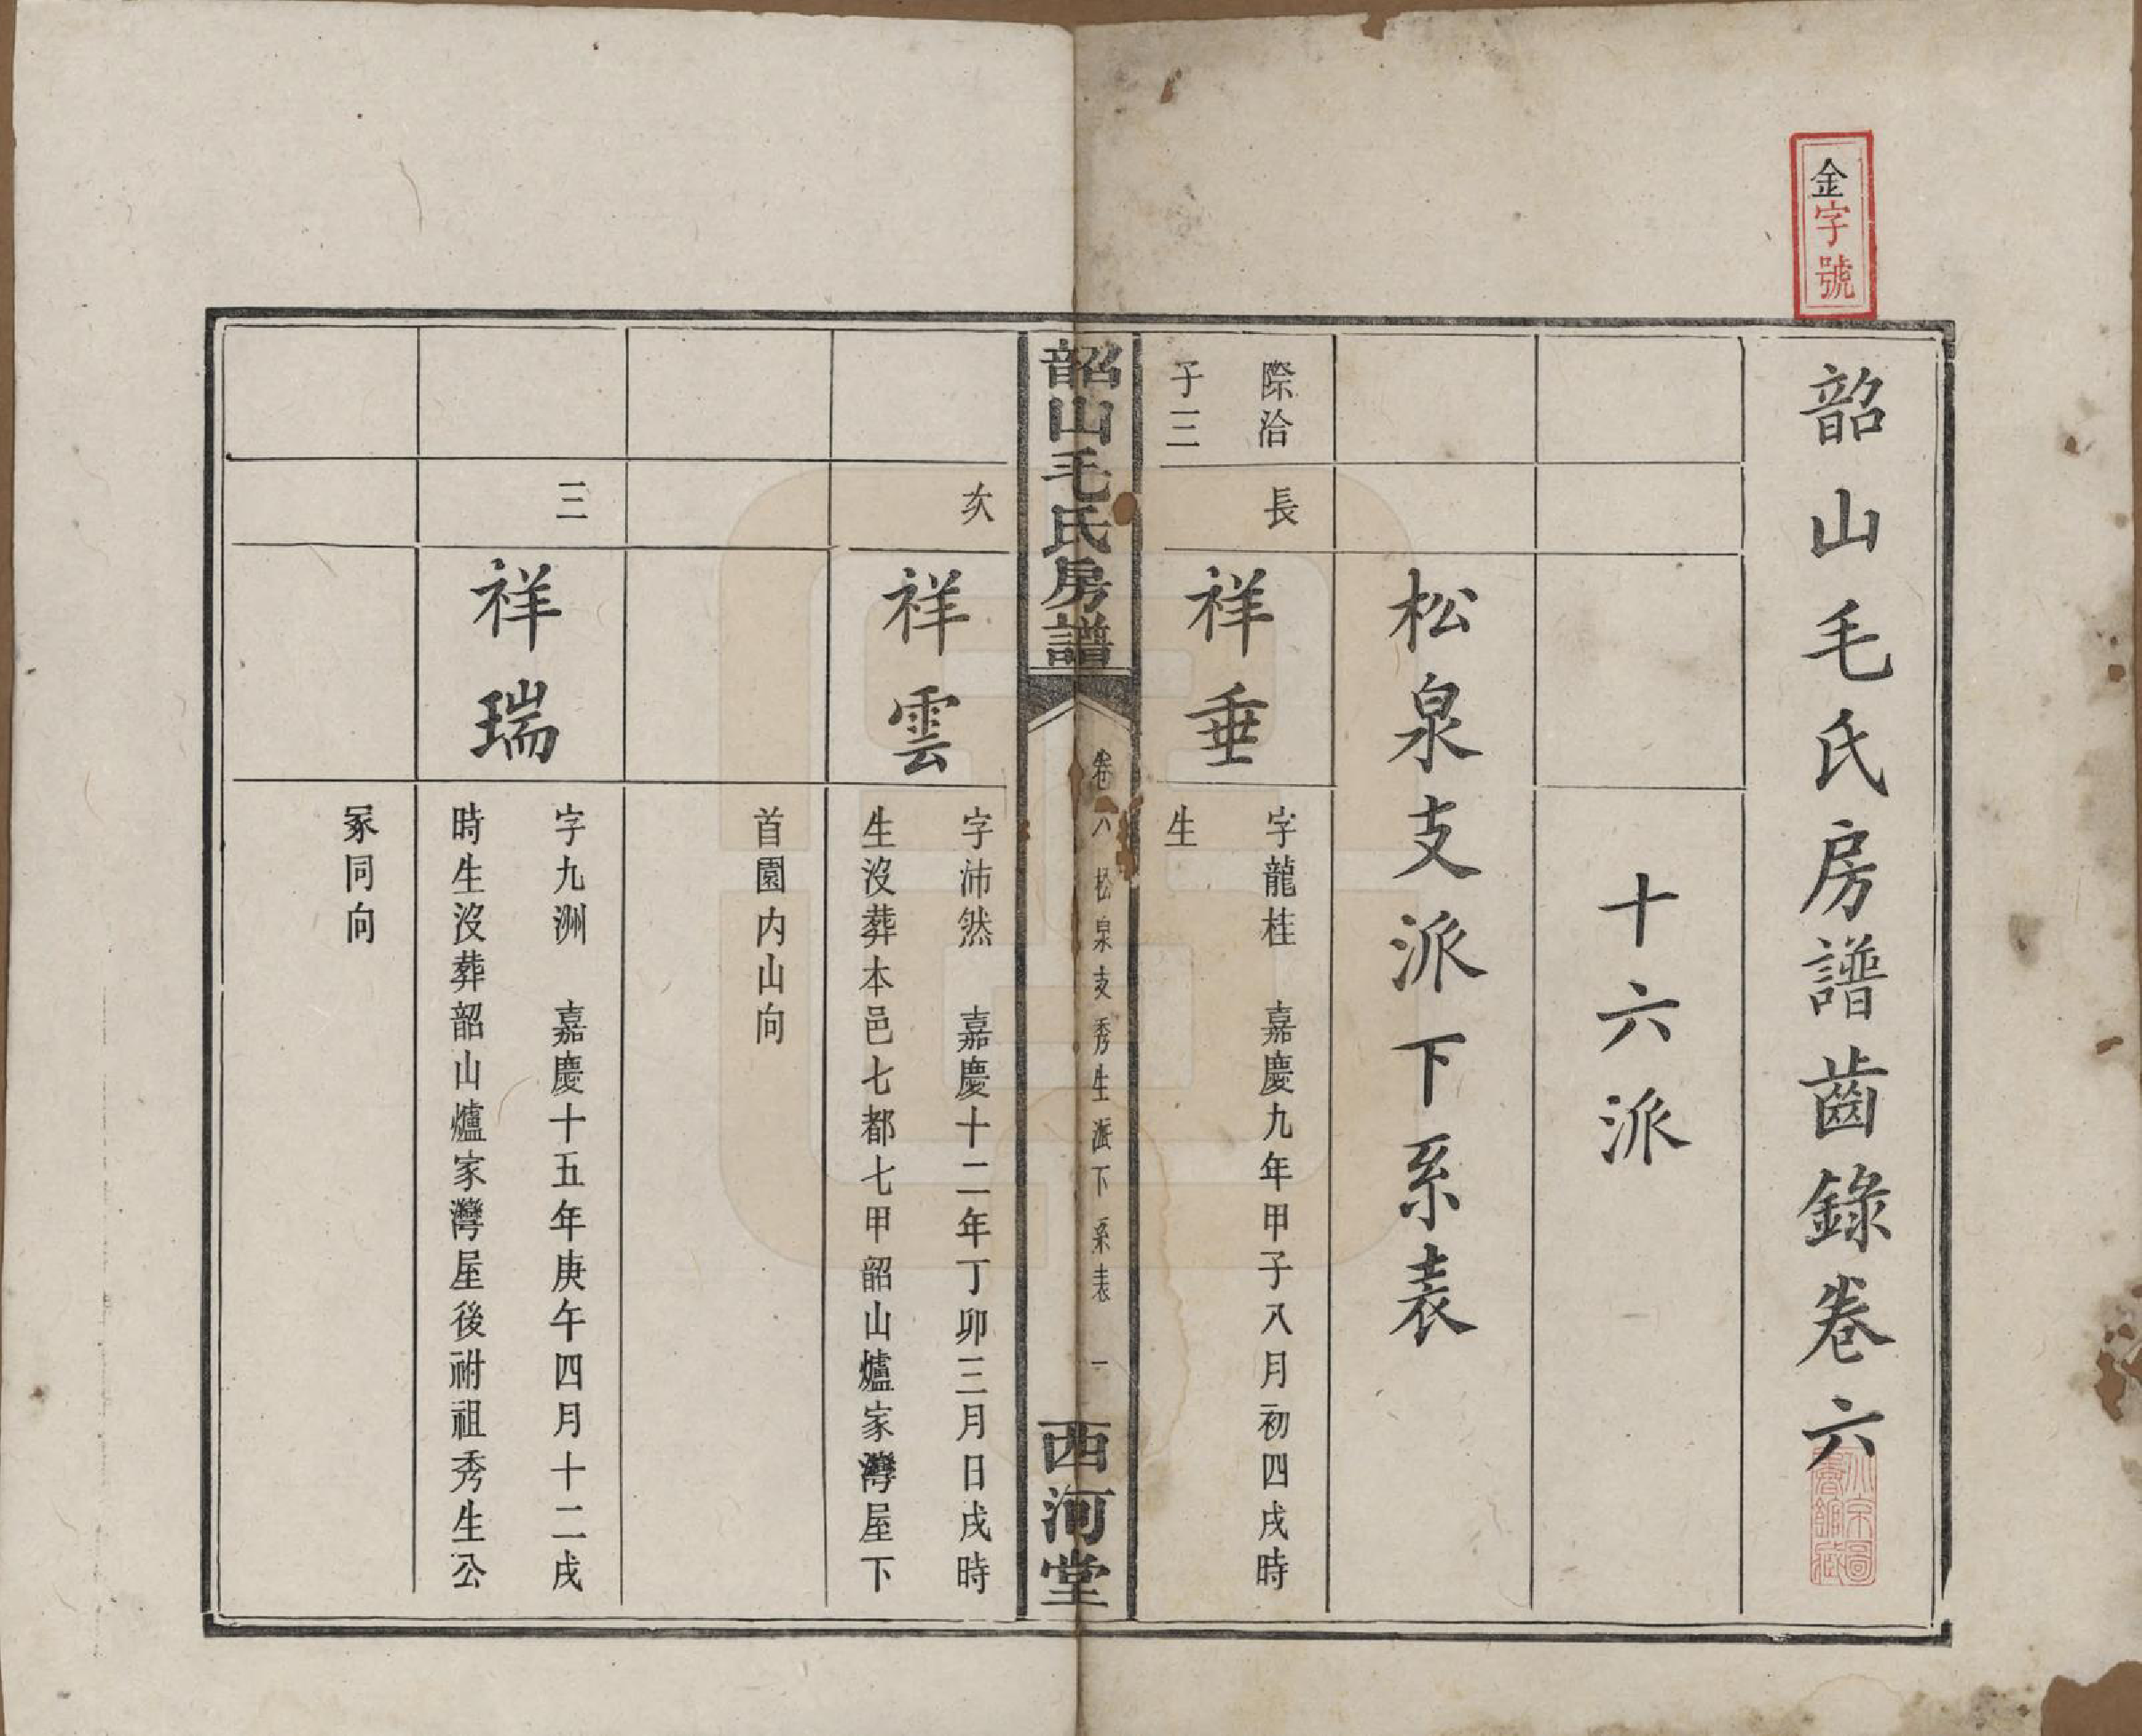 金字號
韶山毛氏房譜齒錄卷六
十六派
松泉支派下系表
際洽
子三
長
祥垂
字龍桂　嘉慶九年甲子八月初四戌時
生
韶山毛氏房譜
卷六　松泉支秀生派下系表　一
西河堂
次
祥雲
字沛然　嘉慶十二年丁卯三月日戌時
生沒葬本邑七都七甲韶山爐家灣屋下
首園内山向
三
祥瑞
字九洲　嘉慶十五年庚午四月十二戌
時生沒葬韶山爐家灣屋後祔祖秀生公
冢同向